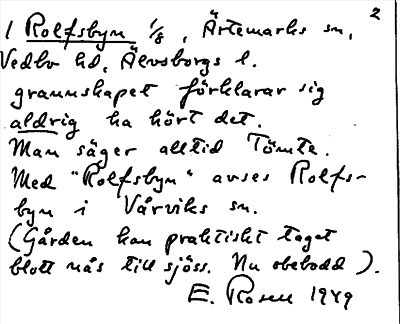 2
I Rolfsbyn 1/8, Ärtemarks sn,
Vedbo hd, Älvsborgs l.
grannskapet förklarar sig
aldrig ha hört det.
Man säger alltid Tömte.
Med "Rolfsbyn" avses Rolfs-
byn i Vårviks sn.
(Gården kan praktiskt taget
blott nås till sjöss. Nu obebodd).
E. Rosell 1949